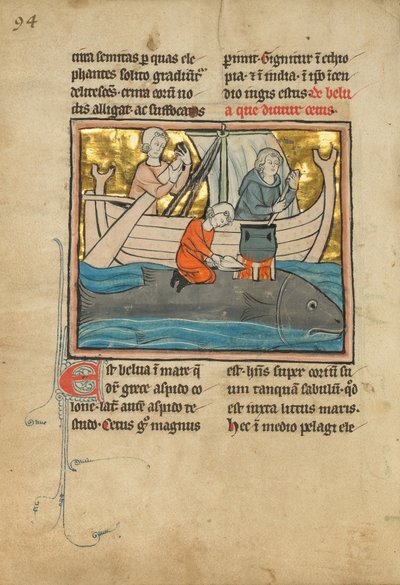 94
crura semitas p quas ele
phantes solito gradiunt
delitesces. crura eorum no
dis alligat. ac suffocatos
perimit. Gignitur i ethio
pia. et i india. i ipo icen
dio iugis estus. De belu
a que dicitur cetus.
Est belua i mare q
dr grece aspido co
lone. lat. aut aspido te
studo. Cetus g magnus
est. hns super corium su
um tanquam sabulum. qd
est iuxta littus maris.
Hec i medio pelagi ele